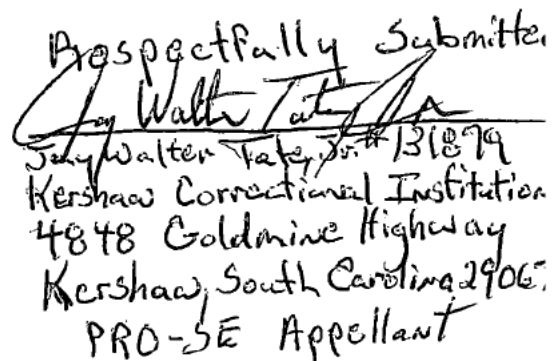 Respectfully Submitte
Jay Walter Tate, Jr.
Jay Walter Tate, Jr. # 131879
Kershaw Correctional Institution
4848 Goldmine Highway
Kershaw, South Carolina 2906
PRO-SE Appellant